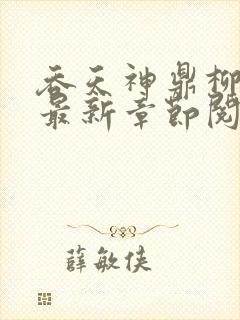 吞天神鼎柳
最新章节阅
薛敏侠